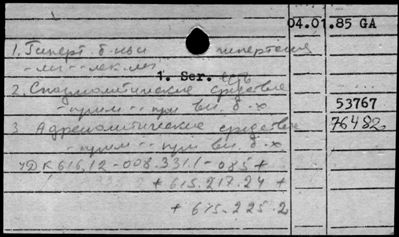 04.01.85 GA
1. Гиперт. б-нь гипертения
- ли - лек. ли
1. Ser.
2. Спазмолитические средства
- прим - при вн. б-х
53767
3 Адренолитические средства
76482
- прим - при вн. б-х
УДК 616.12-008.331.1-085 +
+ 615.217.24 +
+ 615.225.2